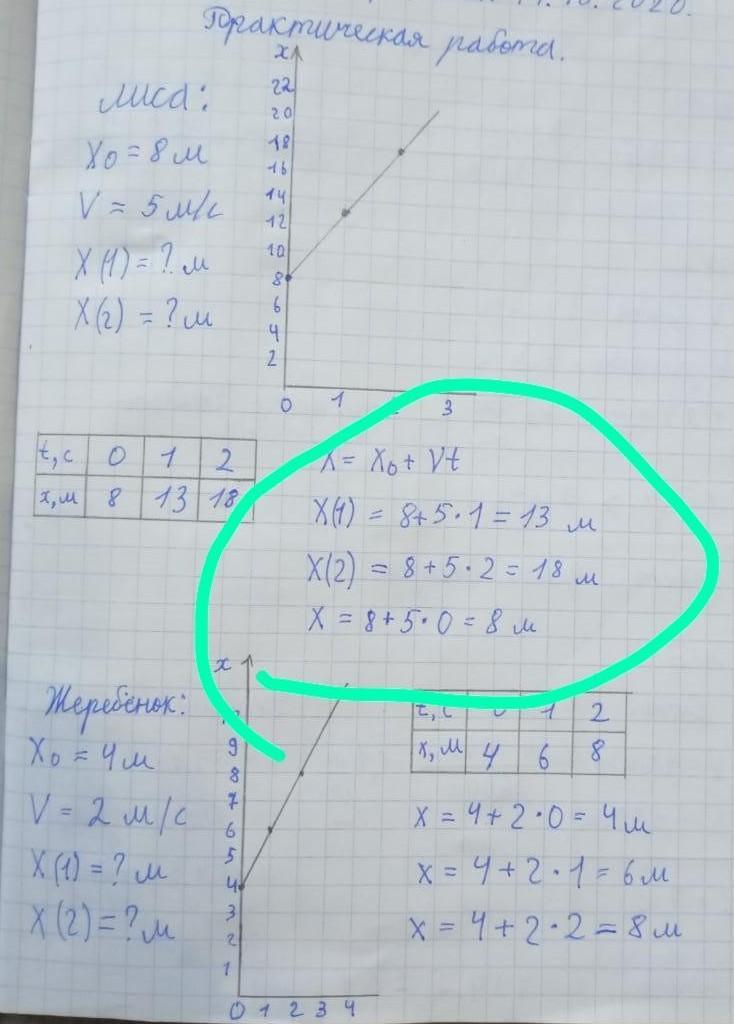 Практическая работа.
Лиса:
X0 = 8 м
V = 5 м/с
X(1) = ? м
X(2) = ? м
x
22
20
18
16
14
12
10
8
6
4
2
0 1 3
t, с 0 1 2
x, м 8 13 18
X = X0 + Vt
X(1) = 8+5·1 = 13 м
X(2) = 8+5·2 = 18 м
X = 8+5·0 = 8 м
Жеребёнок:
X0 = 4 м
V = 2 м/с
X(1) = ? м
X(2) = ? м
x
9
8
7
6
5
4
3
2
1
0 1 2 3 4
t, с 1 2
x, м 4 6 8
X = 4+2·0 = 4 м
X = 4+2·1 = 6 м
X = 4+2·2 = 8 м